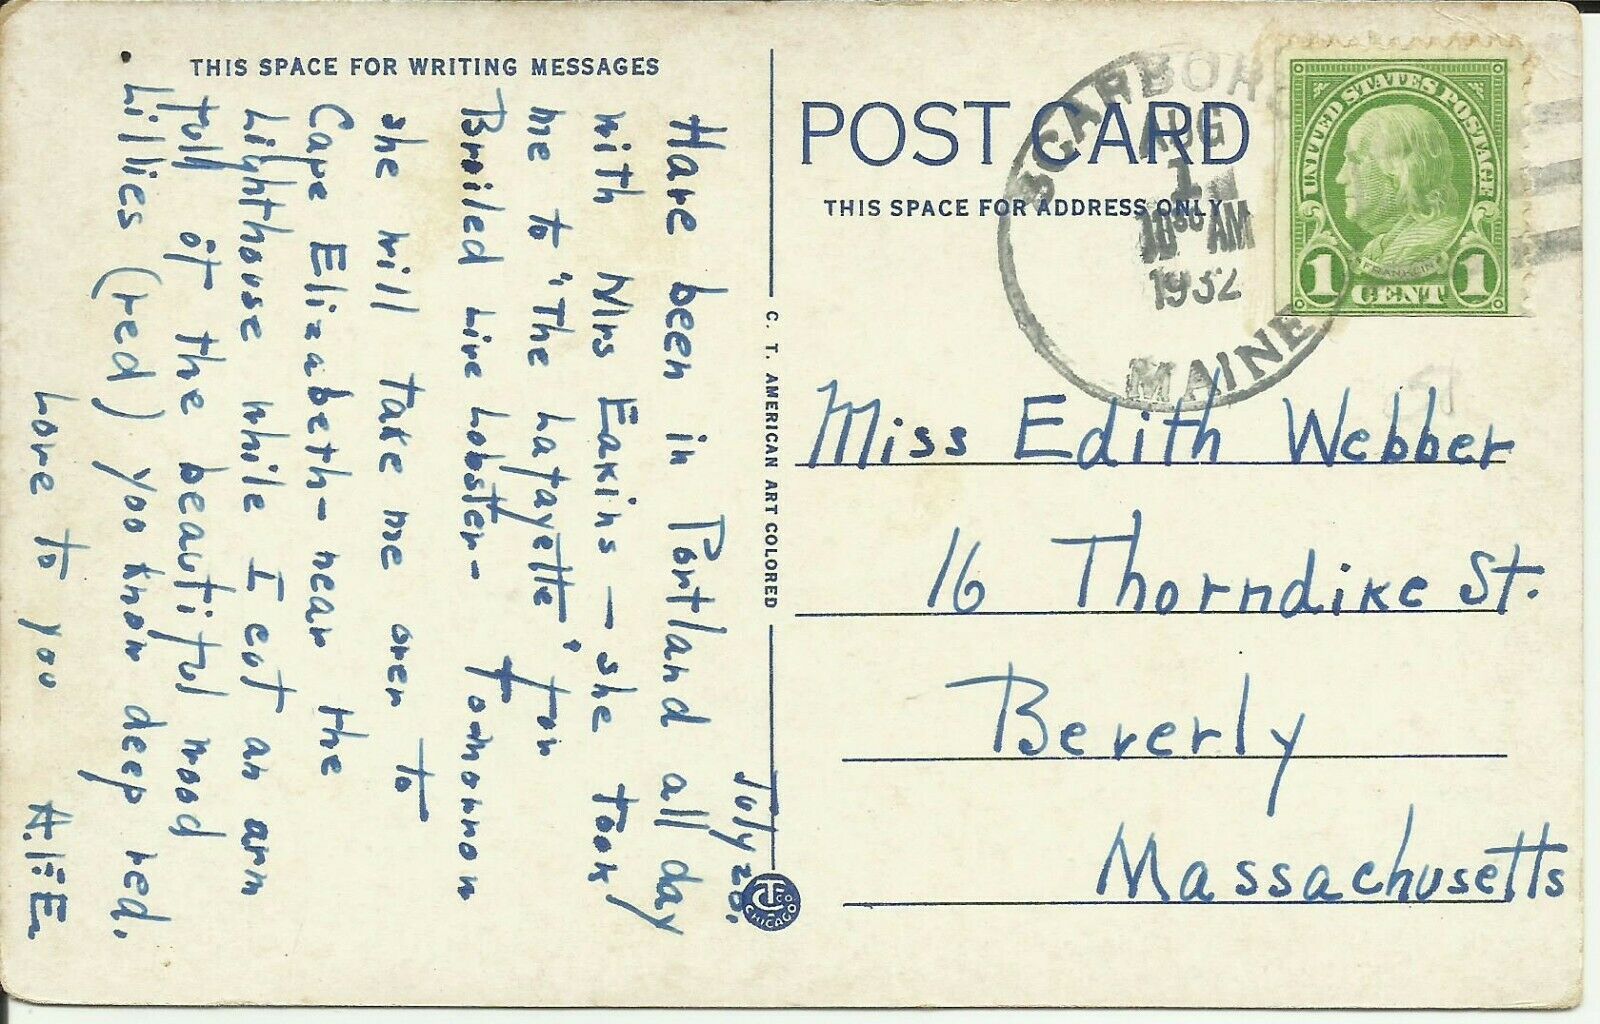 THIS SPACE FOR WRITING MESSAGES
July 20.
Have been in Portland all day
with Mrs Eakins — she took
me to "The Lafayette" for
Broiled Live Lobster - Tomorrow
she will take me over to
Cape Elizabeth - near the
Lighthouse while I cut an arm
full of the beautiful wood
Lillies (red) you know deep red.
Love to you
C. T. AMERICAN ART COLORED
CHICAGO
POST CARD
THIS SPACE FOR ADDRESS ONLY
SCARBORO
AUG
1
10 30 AM
1932
MAINE
UNITED STATES POSTAGE
FRANKLIN
1 CENT 1
Miss Edith Webber
16 Thorndike St.
Beverly
Massachusetts